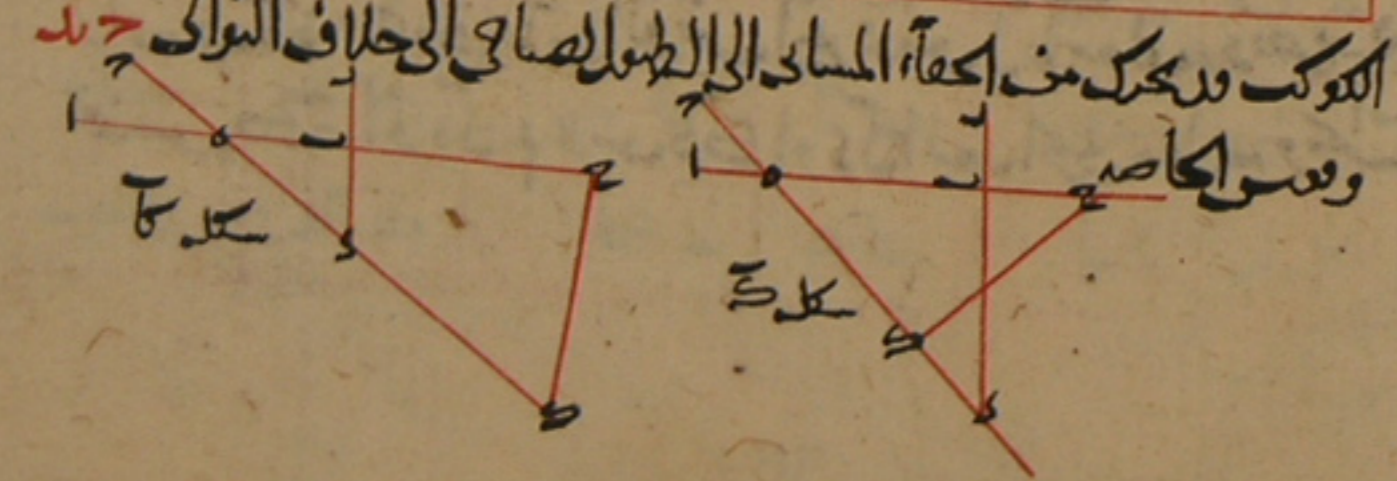 الكوكب وقد تحرك من الخفاء المسائى الى الطهور الصباحى الى خلاف التوالى
وقوس الخاصه
ا ه ب ح
ز د ى
شكل ك
ا ه ب ح
ز د ى
شكل كا